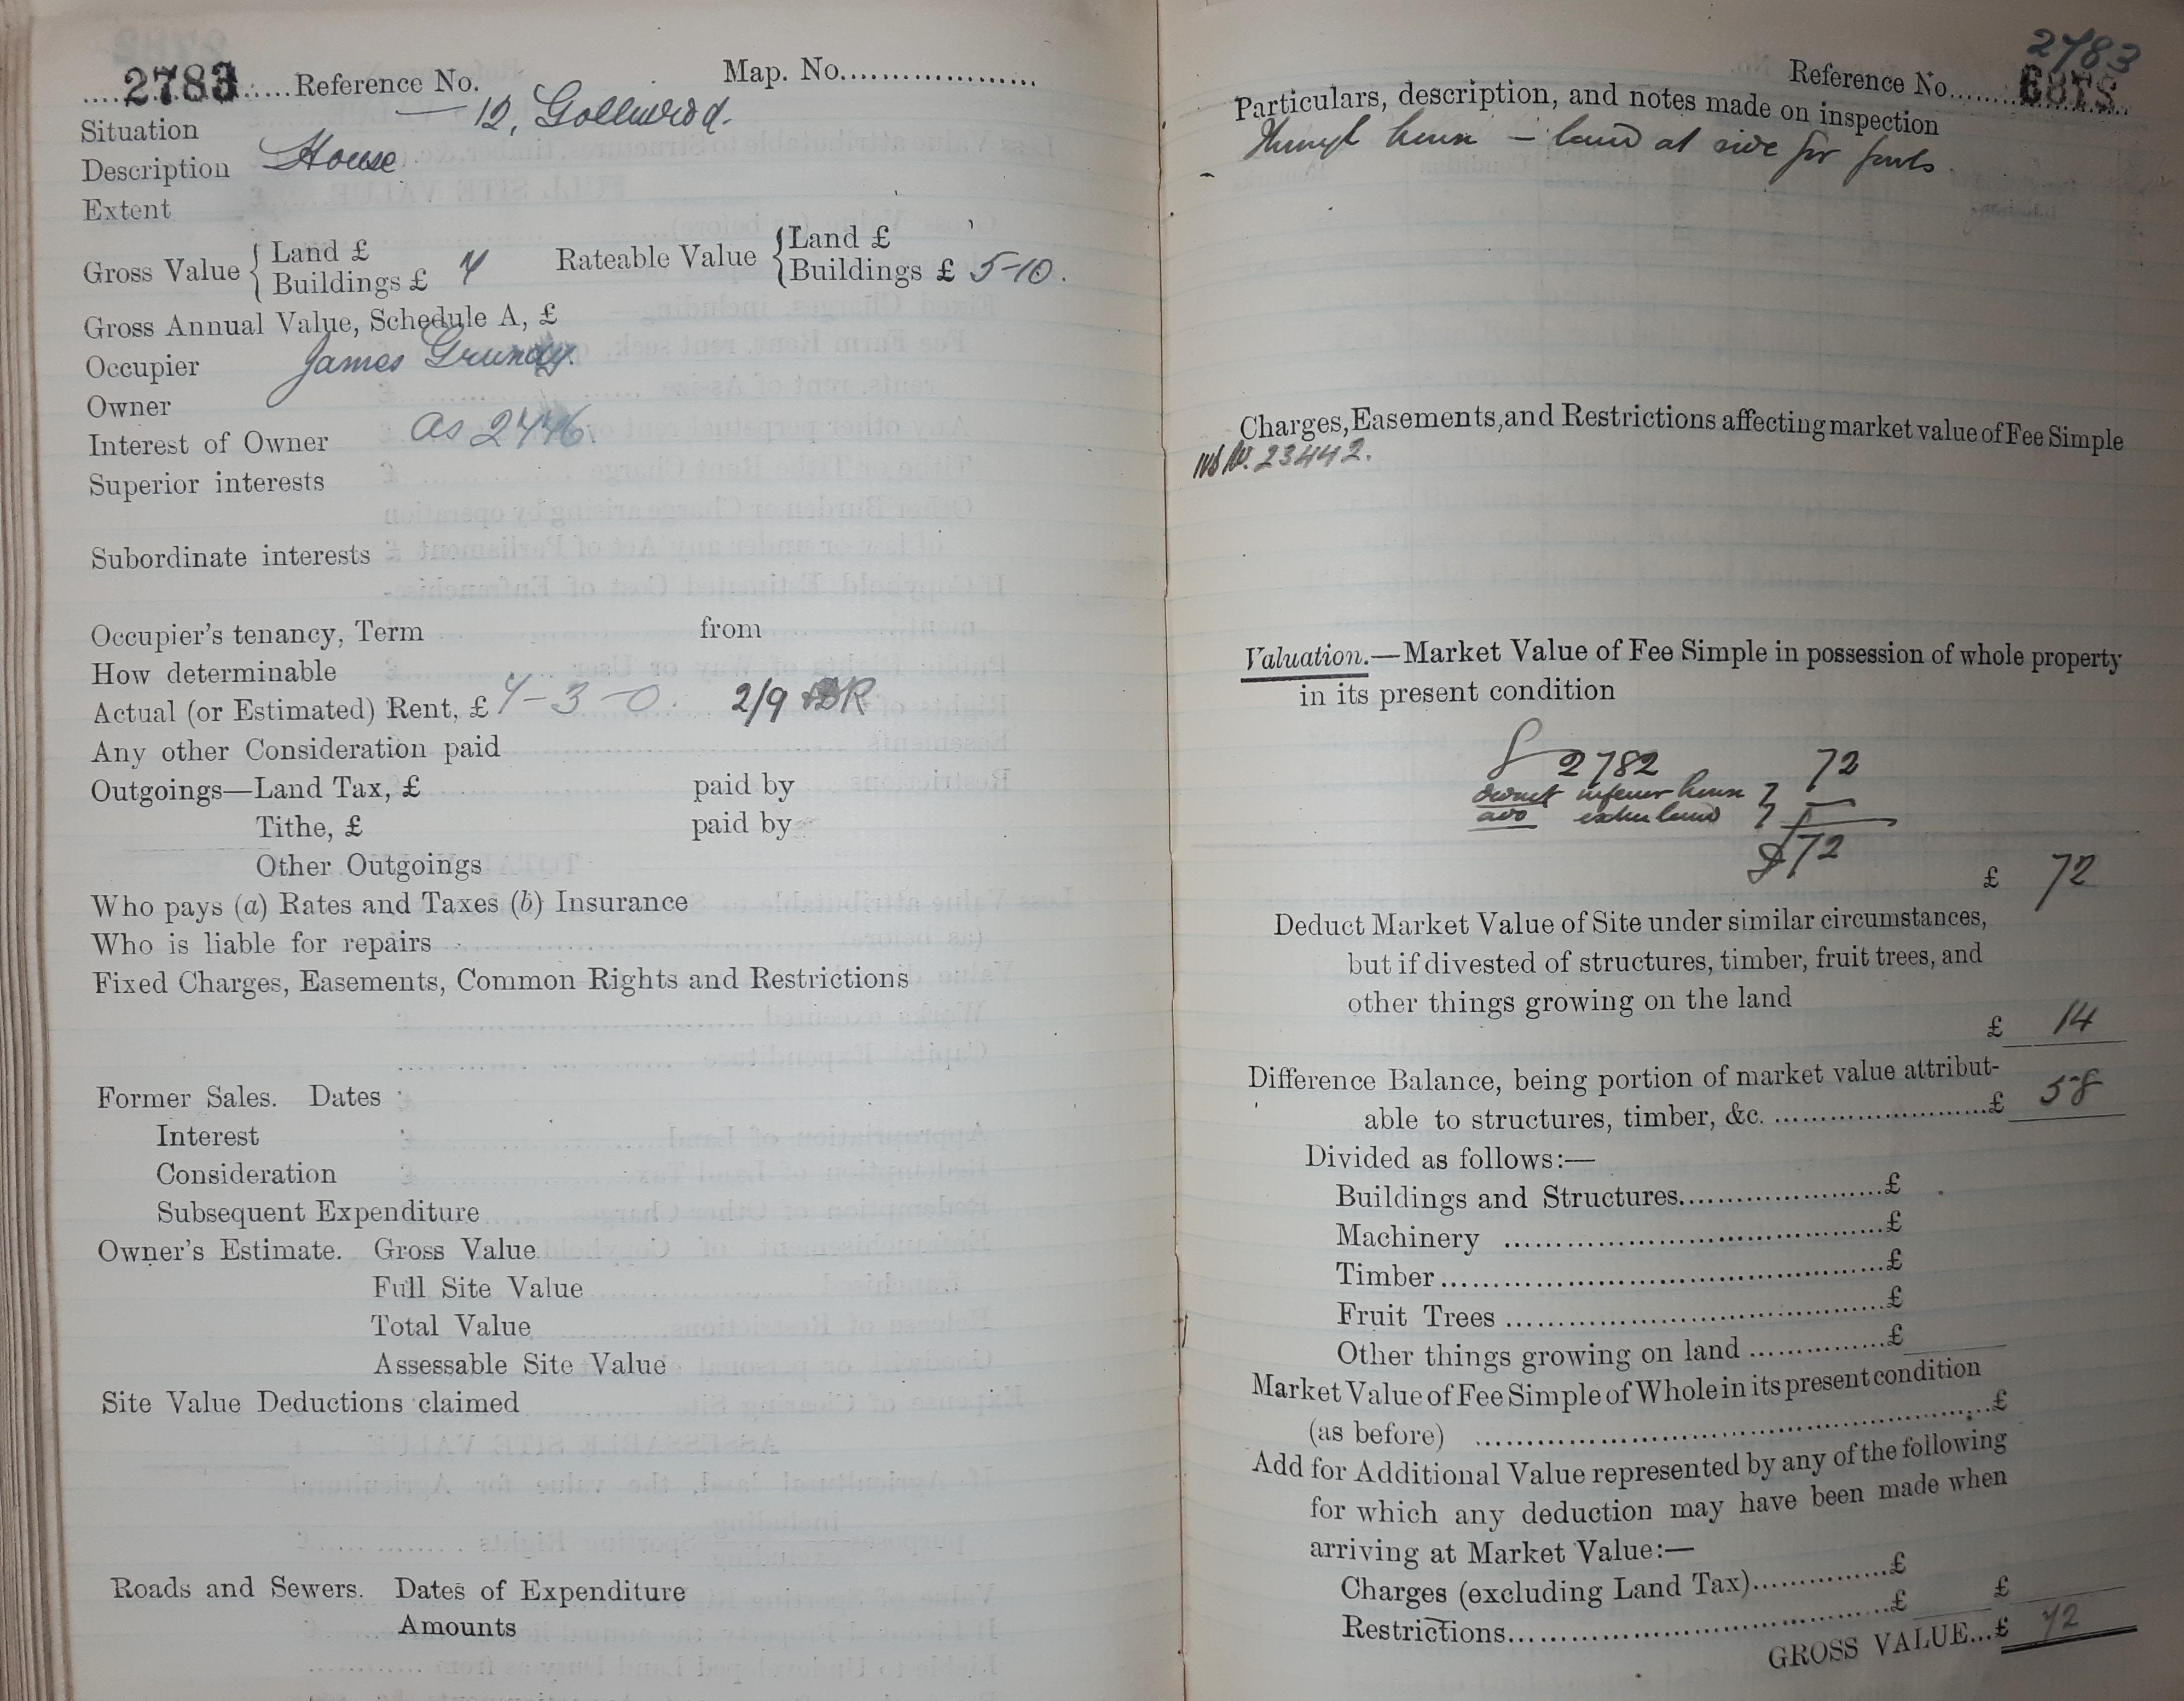 2783 Reference No. Map. No.
Situation — 12, Gollinrod.
Description House
Extent
Gross Value { Land £
Buildings £ 7 Rateable Value { Land £
Buildings £ 5-10.
Gross Annual Value, Schedule A, £
Occupier James Grundy.
Owner
Interest of Owner As 2446.
Superior interests
Subordinate interests
Occupier's tenancy, Term from
How determinable
Actual (or Estimated) Rent, £ 7-3-0. 2/9
Any other Consideration paid
Outgoings—Land Tax, £ paid by
Tithe, £ paid by
Other Outgoings
Who pays (a) Rates and Taxes (b) Insurance
Who is liable for repairs
Fixed Charges, Easements, Common Rights and Restrictions
Former Sales. Dates
Interest
Consideration
Subsequent Expenditure
Owner's Estimate. Gross Value
Full Site Value
Total Value
Assessable Site Value
Site Value Deductions claimed
Roads and Sewers. Dates of Expenditure
Amounts
2783
Reference No.
Particulars, description, and notes made on inspection
Through house — land at side for fowls
Charges, Easements, and Restrictions affecting market value of Fee Simple
23442.
Valuation.—Market Value of Fee Simple in possession of whole property
in its present condition
2782 72
deduct inferior house }
add extra land }
£72
£ 72
Deduct Market Value of Site under similar circumstances,
but if divested of structures, timber, fruit trees, and
other things growing on the land
£ 14
Difference Balance, being portion of market value attribut-
able to structures, timber, &c. £ 58
Divided as follows:—
Buildings and Structures £
Machinery £
Timber £
Fruit Trees £
Other things growing on land £
Market Value of Fee Simple of Whole in its present condition
(as before) £
Add for Additional Value represented by any of the following
for which any deduction may have been made when
arriving at Market Value:—
Charges (excluding Land Tax) £
Restrictions £ £
GROSS VALUE...£ 72